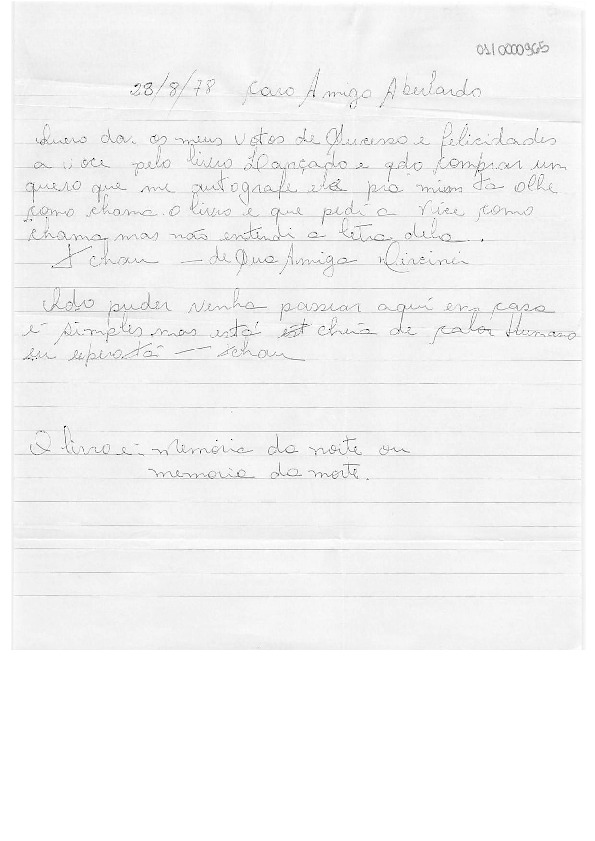 01/0000965
23/8/78 Caro Amigo Abelardo
Quero dar os meus votos de Sucesso e felicidades
a voce pelo livro lançado e qdo comprar um
quero que me autografe ele pra mim tá olhe
como chama o livro é que pedi a Nice como
chama mas não entendi a letra dela..
Tchau — de Sua Amiga
Qdo puder venha passear aqui em casa
é simples mas está cheia de calor Humano
— Tchau
O livro é - Memória da noite ou
memoria da morte.